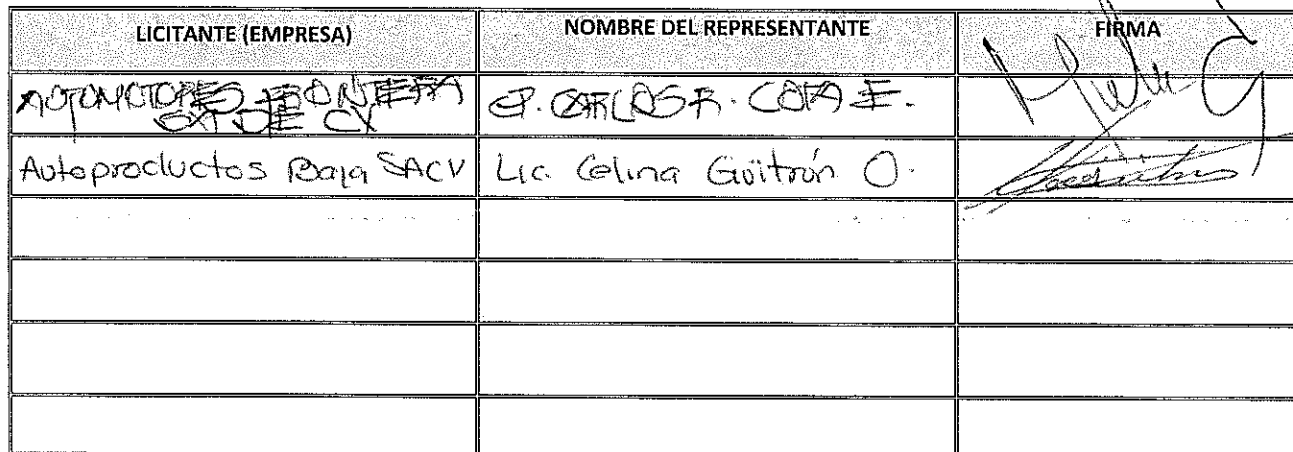 LICITANTE (EMPRESA) NOMBRE DEL REPRESENTANTE FIRMA
AUTOMOTORES FRONTERA CP. CARLOS R. COTA E.
SA DE CV
Autoproductos Baja SACV Lic. Celina Güitrón O.